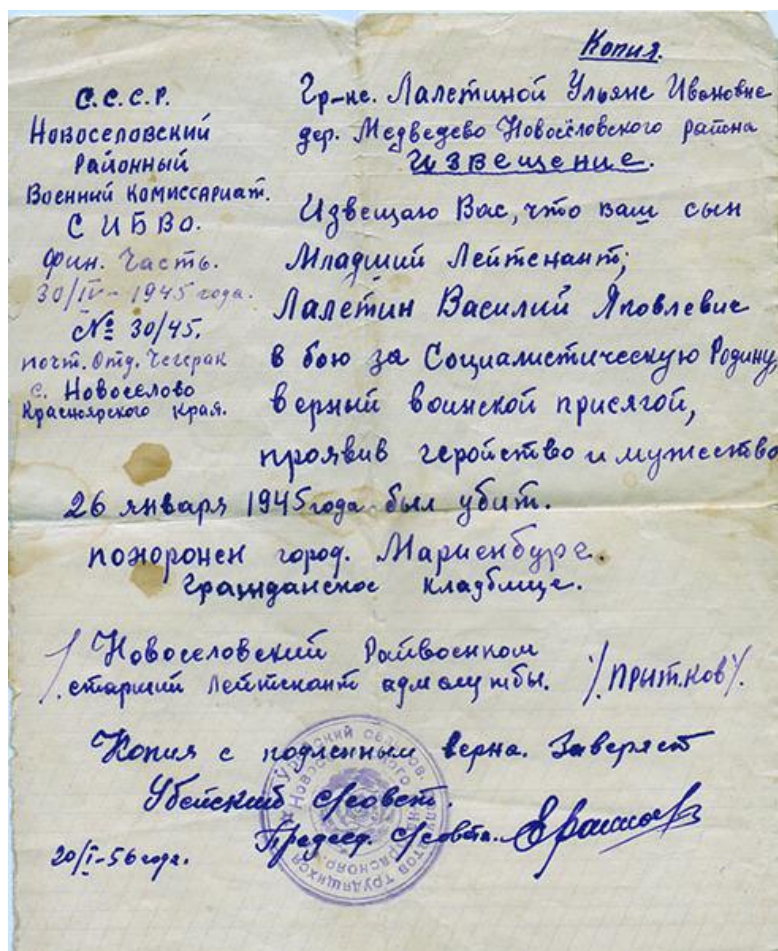 Копия.
С.С.С.Р.
Новоселовский
Районный
Военный Комиссариат.
СИБВО.
Фин. Часть.
30/IV-1945 года.
№ 30/45.
почт. Отд. Чегерак
с. Новоселово
Красноярского Края.
Гр-ке. Лалетиной Ульяне Ивановне
дер. Медведево Новосёловского района
Извещение.
Извещаю Вас, что ваш сын
Младший Лейтенант,
Лалетин Василий Яковлевич
в бою за Социалистическую Родину,
верный воинской присягой,
проявив геройство и мужество
26 января 1945 года был убит.
похоронен город. Мариенбург.
Гражданское кладбище.
/ Новоселовский Райвоенком
старший Лейтенант адм службы. /.Прытков/.
Копия с подленным верна. Заверяет
Убейский с/совет.
Председ. с/совта.
20/I-56 года.